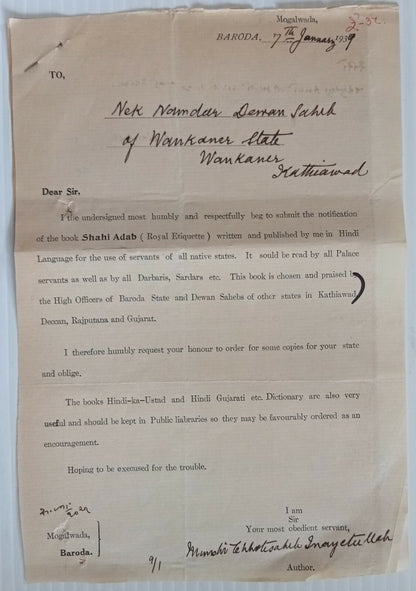 Mogalwada,
BARODA, 7th January 1939
TO,
Nek Namdar Dewan Saheb
of Wankaner State
Wankaner
Kathiawad
Dear Sir,
I the undersigned most humbly and respectfully beg to submit the notification
of the book Shahi Adab ( Royal Etiquette ) written and published by me in Hindi
Language for the use of servants of all native states. It sould be read by all Palace
servants as well as by all Darbaris, Sardars etc. This book is chosen and praised by
the High Officers of Baroda State and Dewan Sahebs of other states in Kathiawad
Deccan, Rajputana and Gujarat.
I therefore humbly request your honour to order for some copies for your state
and oblige.
The books Hindi-ka-Ustad and Hindi Gujarati etc. Dictionary are also very
useful and should be kept in Public liabraries so they may be favourably ordered as an
encouragement.
Hoping to be execused for the trouble.
I am
Sir
Your most obedient servant,
Munshi Chhotesaheb Inayetullah
Author.
Mogalwada,
Baroda.
9/1